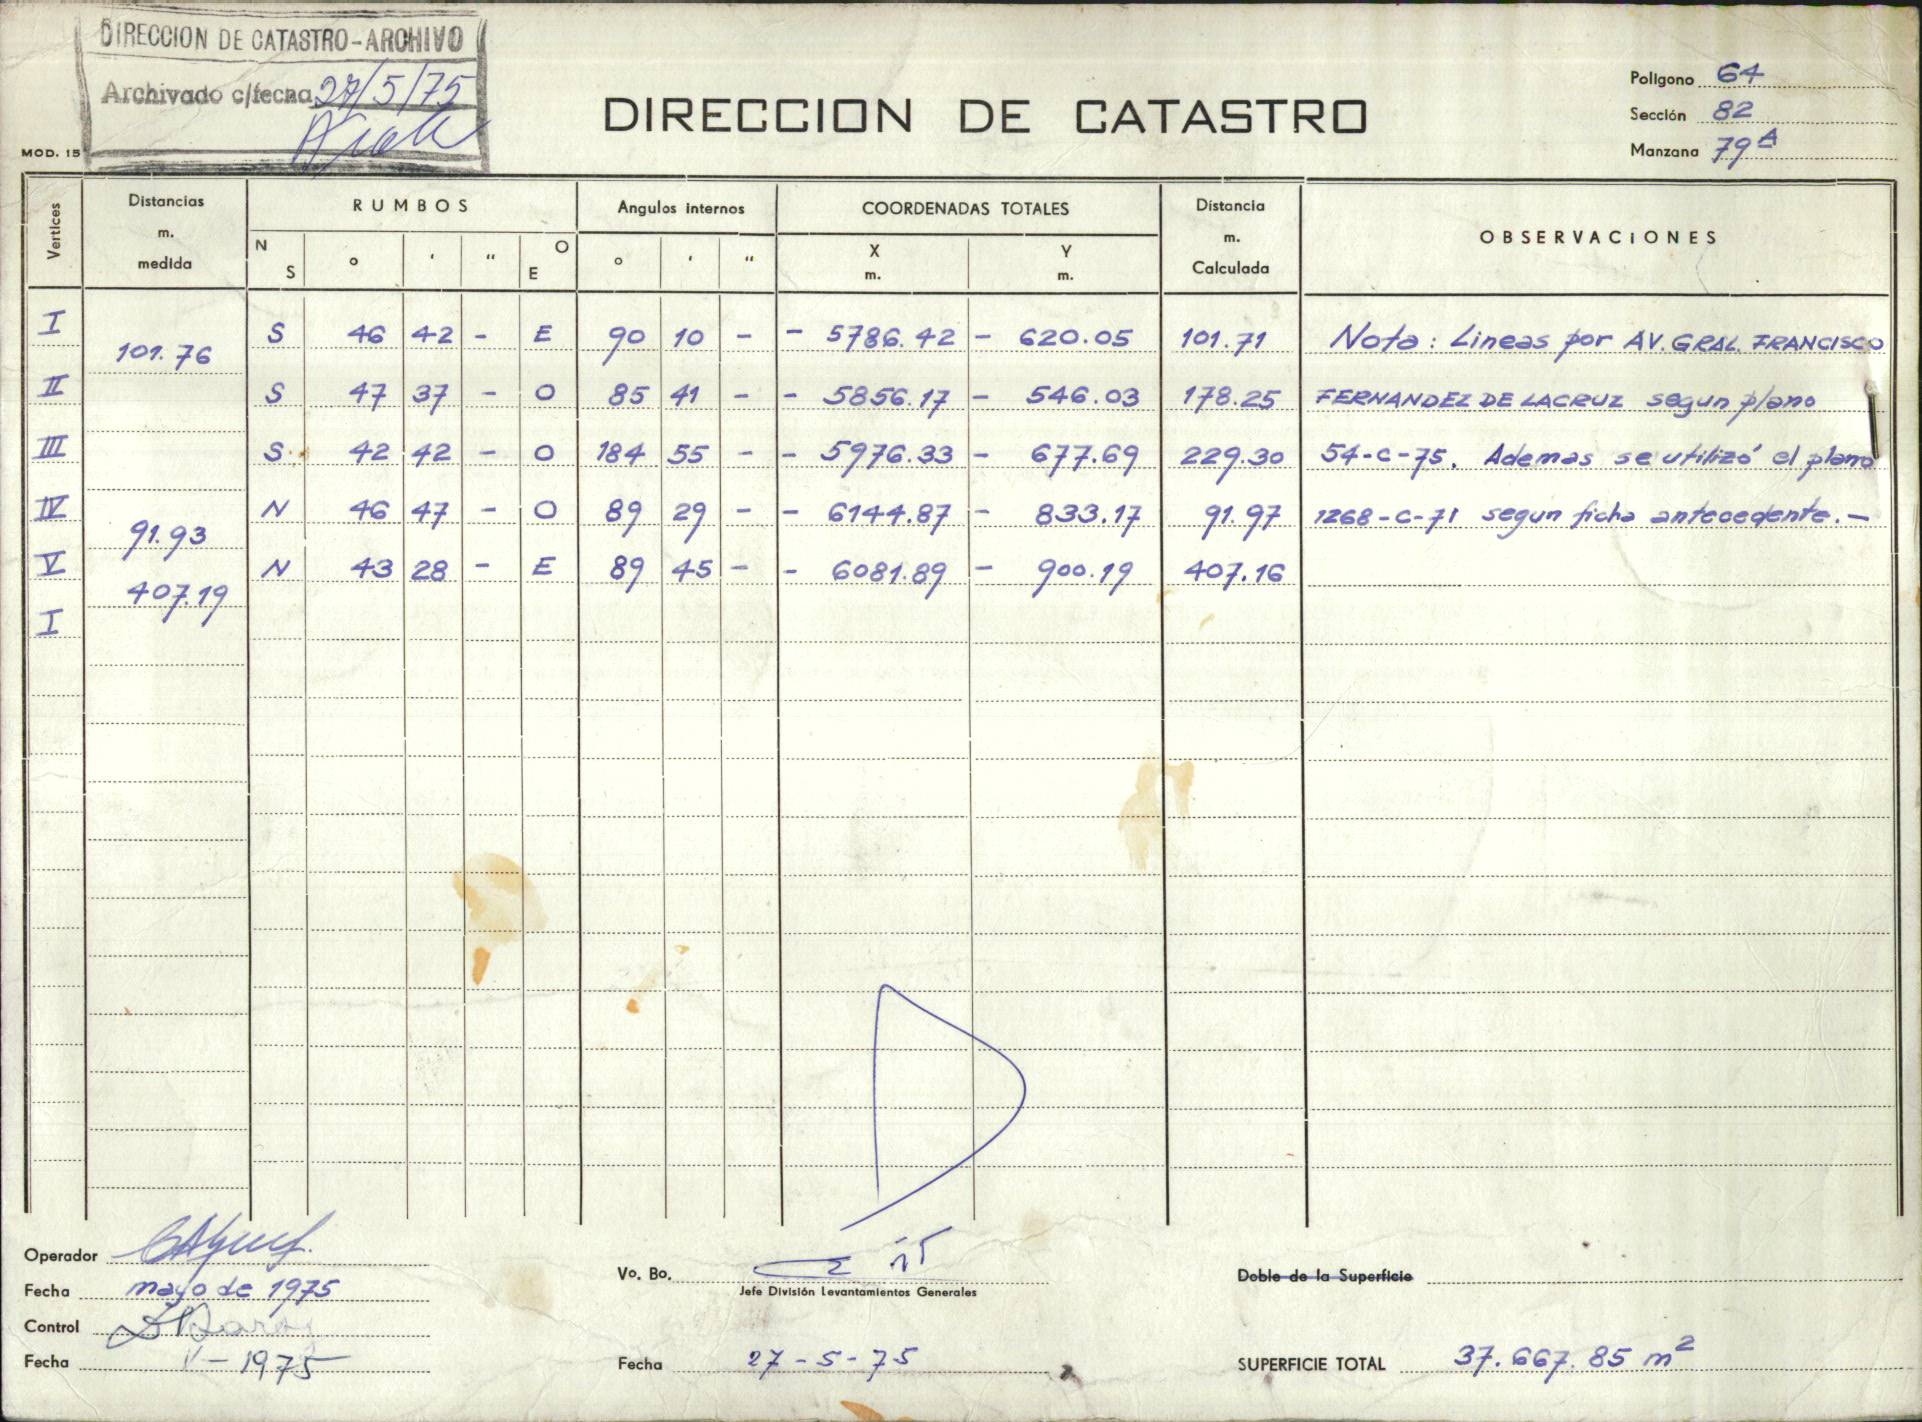 DIRECCION DE CATASTRO-ARCHIVO
Archivado c/fecha 27/5/75
MOD. 15
DIRECCION DE CATASTRO
Polígono 64
Sección 82
Manzana 79A
Vertices
Distancias m. medida
RUMBOS
N S ° ' " O E
Angulos internos
° ' "
COORDENADAS TOTALES
X m. Y m.
Distancia m. Calculada
OBSERVACIONES
I S 46 42 - E 90 10 - - 5786.42 - 620.05 101.71 Nota: Lineas por AV. GRAL. FRANCISCO
101.76
II S 47 37 - O 85 41 - - 5856.17 - 546.03 178.25 FERNANDEZ DE LACRUZ segun plano
III S 42 42 - O 184 55 - - 5976.33 - 677.69 229.30 54-C-75. Ademas se utilizó el plano
IV N 46 47 - O 89 29 - - 6144.87 - 833.17 91.97 1268-C-71 segun ficha antecedente.-
91.93
V N 43 28 - E 89 45 - - 6081.89 - 900.19 407.16
407.19
I
Operador
Fecha mayo de 1975
Control
Fecha V-1975
Vo. Bo.
Jefe División Levantamientos Generales
Fecha 27-5-75
Doble de la Superficie
SUPERFICIE TOTAL 37.667.85 m2